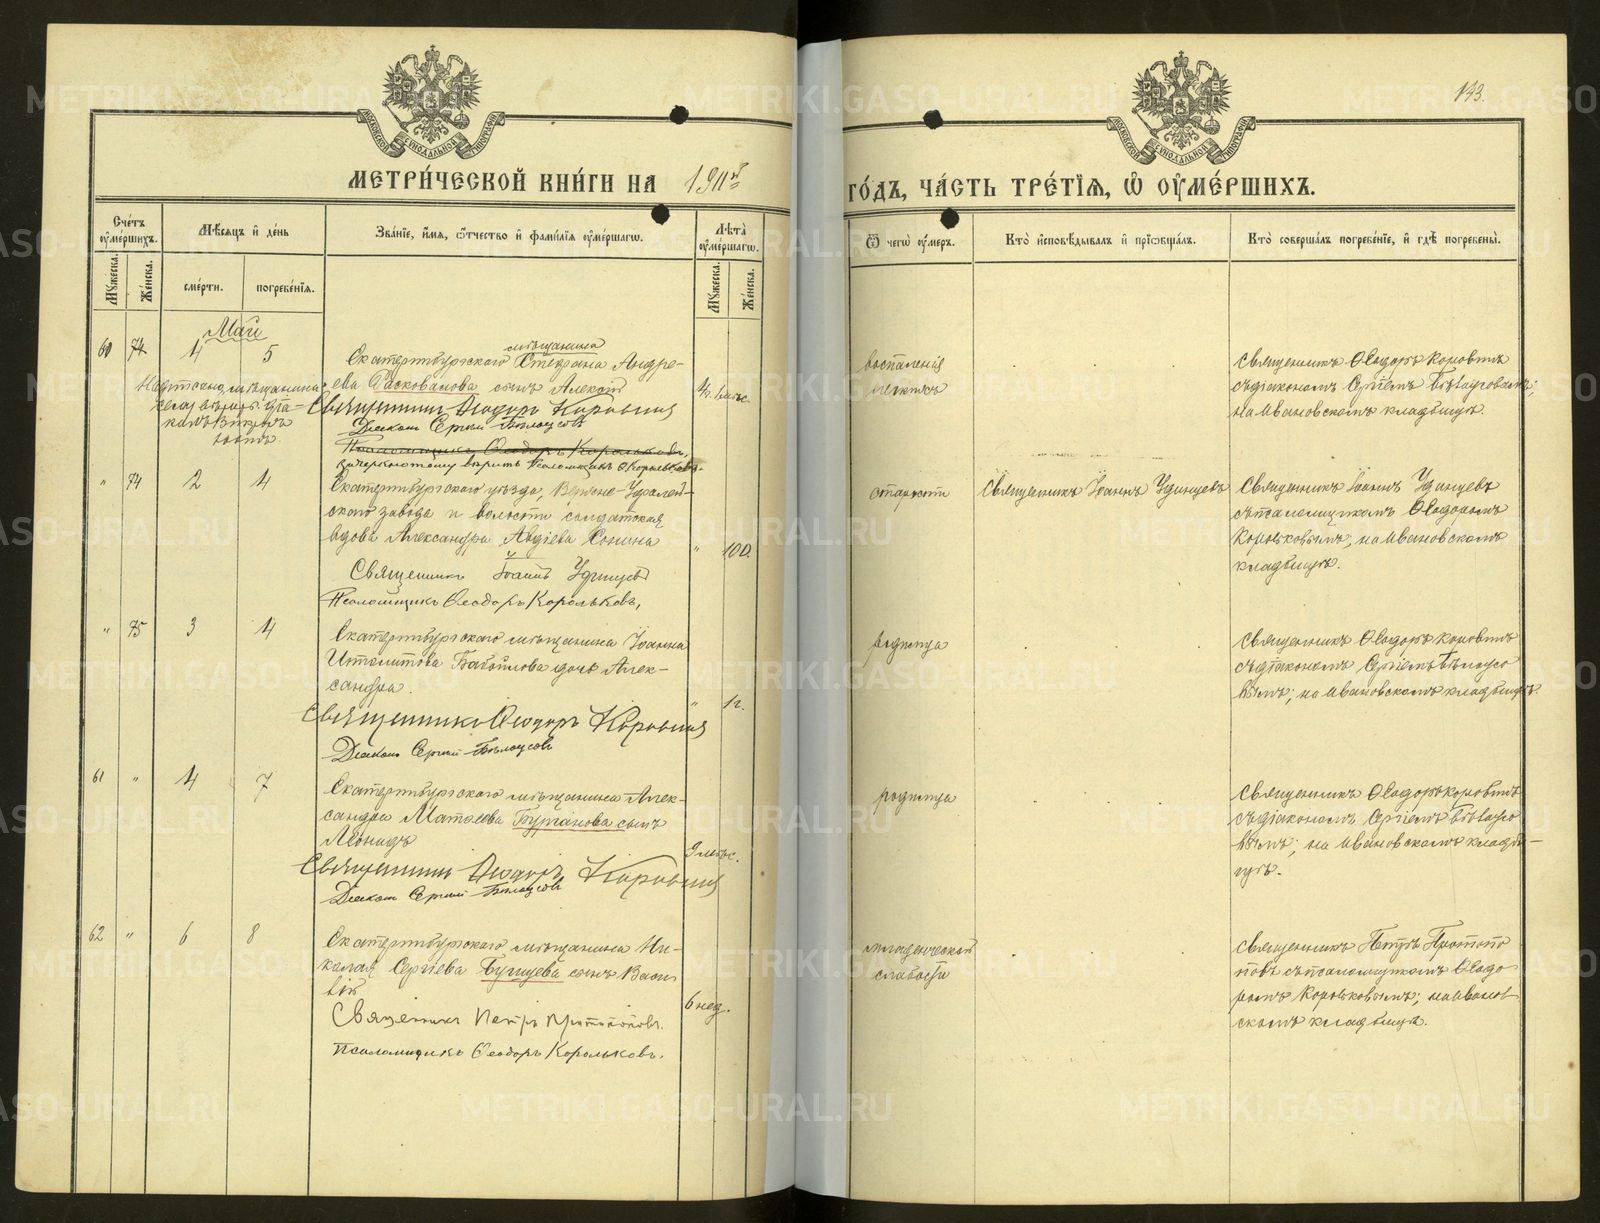 133.
МЕТРИ́ЧЕСКОЙ КНИ́ГИ НА 1911й
ГО́ДЪ, ЧА́СТЬ ТРЕ́ТЇѦ, Ѿ ОУМЕ́РШИХЪ.
Сче́тъ оумершихъ.
Мѣсяцъ и де́нь
Зва́нїе, и́мѧ, ѻ҆́тчество и фамилїѧ оумершагѡ.
Лѣта̀ оумершагѡ.
Ѿ чегѡ̀ оумеръ.
Кто̀ исповѣдывалъ и прїѡбща́лъ.
Кто̀ соверша́лъ погребе́нїе, и гдѣ̀ погребены̀.
Мꙋжеска.
Же́нска.
сме́рти.
погребе́нїѧ.
Мꙋжеска.
Же́нска.
Май
60
74
4
5
мѣщанина
Екатеринбургскаго Стефана Андре-
ева Расковалова сынъ Алексій
Священникъ Ѳеодоръ Коровинъ
Діаконъ Сергій Бѣлоусовъ
Псаломщикъ Ѳеодоръ Корольковъ,
зачеркнутому вѣрить Псаломщикъ Ѳ Корольковъ.
воспаленія
легкихъ
Священникъ Ѳеодоръ Коровинъ
съ діакономъ Сергіемъ Бѣлоусовымъ;
на Ивановскомъ кладбищѣ.
"
74
2
4
Екатеринбургскаго уѣзда, Верхне-Уфалей-
скаго завода и волости солдатская
вдова Александра Авдіева Сонина
"
100.
Священникъ Іоаннъ Удинцевъ
Псаломщикъ Ѳеодоръ Корольковъ,
старости
Священникъ Іоаннъ Удинцевъ
Священникъ Іоаннъ Удинцевъ
съ псаломщикомъ Ѳеодоромъ
Корольковымъ, на Ивановскомъ
кладбищѣ.
"
75
3
4
Екатеринбургскаго мѣщанина Іоанна
Ипполитова Бабойлова дочь Алек-
сандра.
"
1 г.
Священникъ Ѳеодоръ Коровинъ
Діаконъ Сергій Бѣлоусовъ
родимца
Священникъ Ѳеодоръ Коровинъ
съ діакономъ Сергіемъ Бѣлоусо
вымъ; на Ивановскомъ кладбищѣ.
61
"
4
7
Екатеринбургскаго мѣщанина Алек-
сандра Матѳеева Бурганова сынъ
Леонидъ
9 мѣс.
Священникъ Ѳеодоръ Коровинъ
Діаконъ Сергій Бѣлоусовъ
родимца
Священникъ Ѳеодоръ Коровинъ
съ діакономъ Сергіемъ Бѣлоусо
вымъ; на Ивановскомъ кладби-
щѣ.
62
"
6
8
Екатеринбургскаго мѣщанина Ни-
колая Сергіева Бушуева сынъ Васи
лій
6 нед.
Священникъ Петръ Протопоповъ.
Псаломщикъ Ѳеодоръ Корольковъ.
младенческой
слабости
Священникъ Петръ Протопо
повъ съ псаломщикомъ Ѳеодо
ромъ Корольковымъ; на Иванов
скомъ кладбищѣ.
METRIKI.GASO-URAL.RU